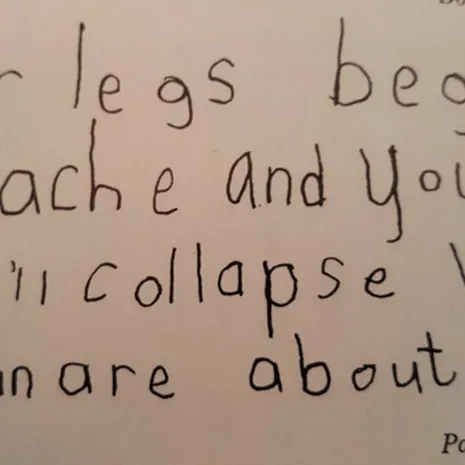 r legs beg
ache and you
'll collapse
n are about
Po